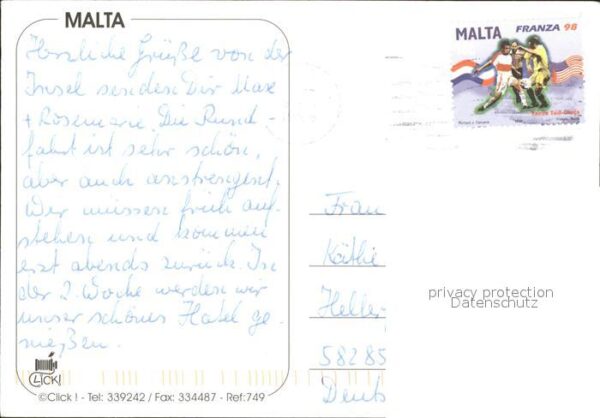 MALTA
Herzliche Grüße von der
Insel senden Dir Max
+ Rosemarie. Die Rund-
fahrt ist sehr schön,
aber auch anstrengend.
Wir müssen früh auf-
stehen und kommen
erst abends zurück. In
der 2. Woche werden wir
unser schönes Hotel ge-
nießen.
CLICK!
©Click ! - Tel: 339242 / Fax: 334487 - Ref:749
MALTA FRANZA 98
Frau
Käthie
Heller
58285
Deuts
privacy protection
Datenschutz